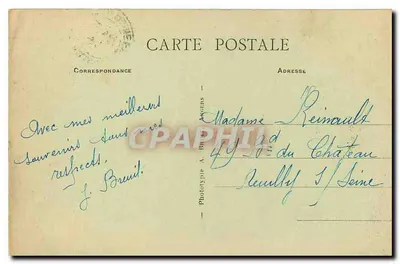 CARTE POSTALE
CORRESPONDANCE
ADRESSE
Avec mes meilleurs
souvenirs tous mes
respects.
J Breuil.
Phototypie A. ANGERS
CPAPHIL
Madame Reinault
49 Bd du Château
Neuilly S/ Seine